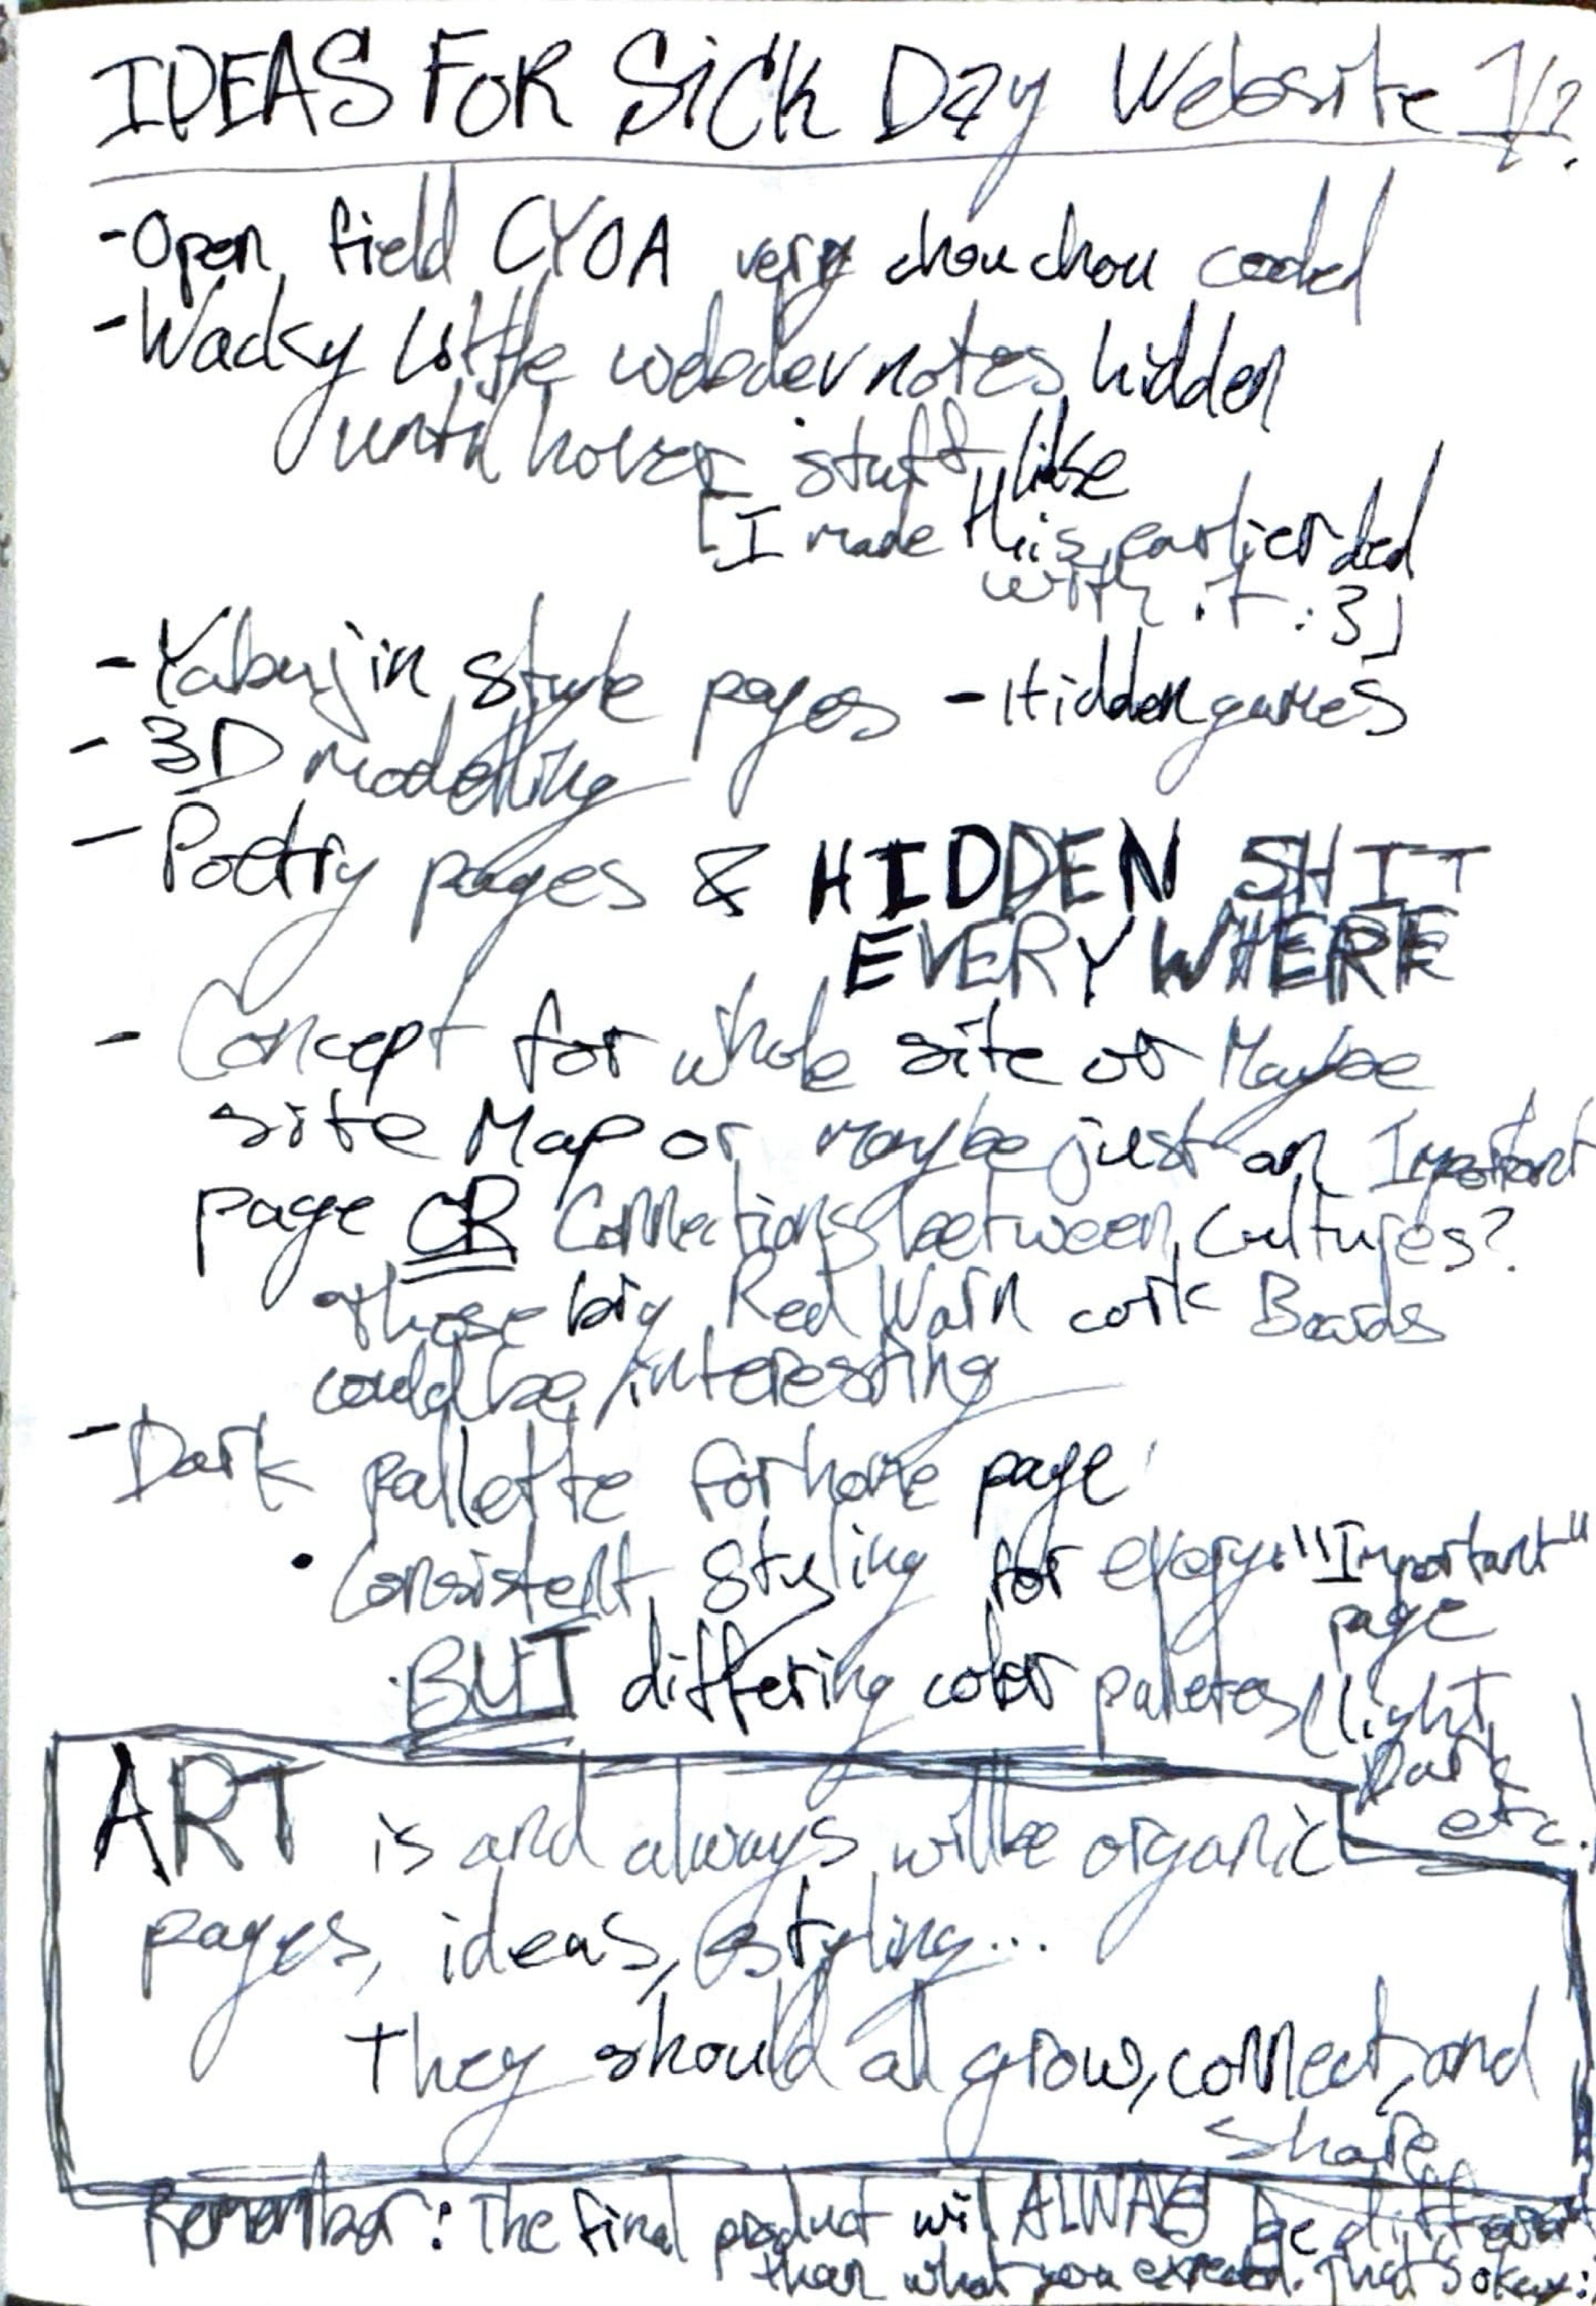 IDEAS FOR SiCK Day Website 1/?
- Open field CYOA very chou chou coded
- Wacky little webdev notes hidden
until hover stuff like
[I made this earlier ded
with it :3]
- Yabujin style pages - Hidden games
- 3D modelling
- Poetry pages & HIDDEN SHIT
EVERYWHERE
- Concept for whole site or Maybe
site Map or maybe just an Important
page OR Connections between Cultures?
• those big Red Warn cork Boards
could be interesting
- Dark pallette for home page
• Consistent Styling for every "Important"
page
• BUT differing color paletes (light,
Dark
etc.)
ART is and always will be organic
pages, ideas, styling...
They should all grow, connect, and
share
Remember: The final product will ALWAYS be different
than what you expected. That's okay :